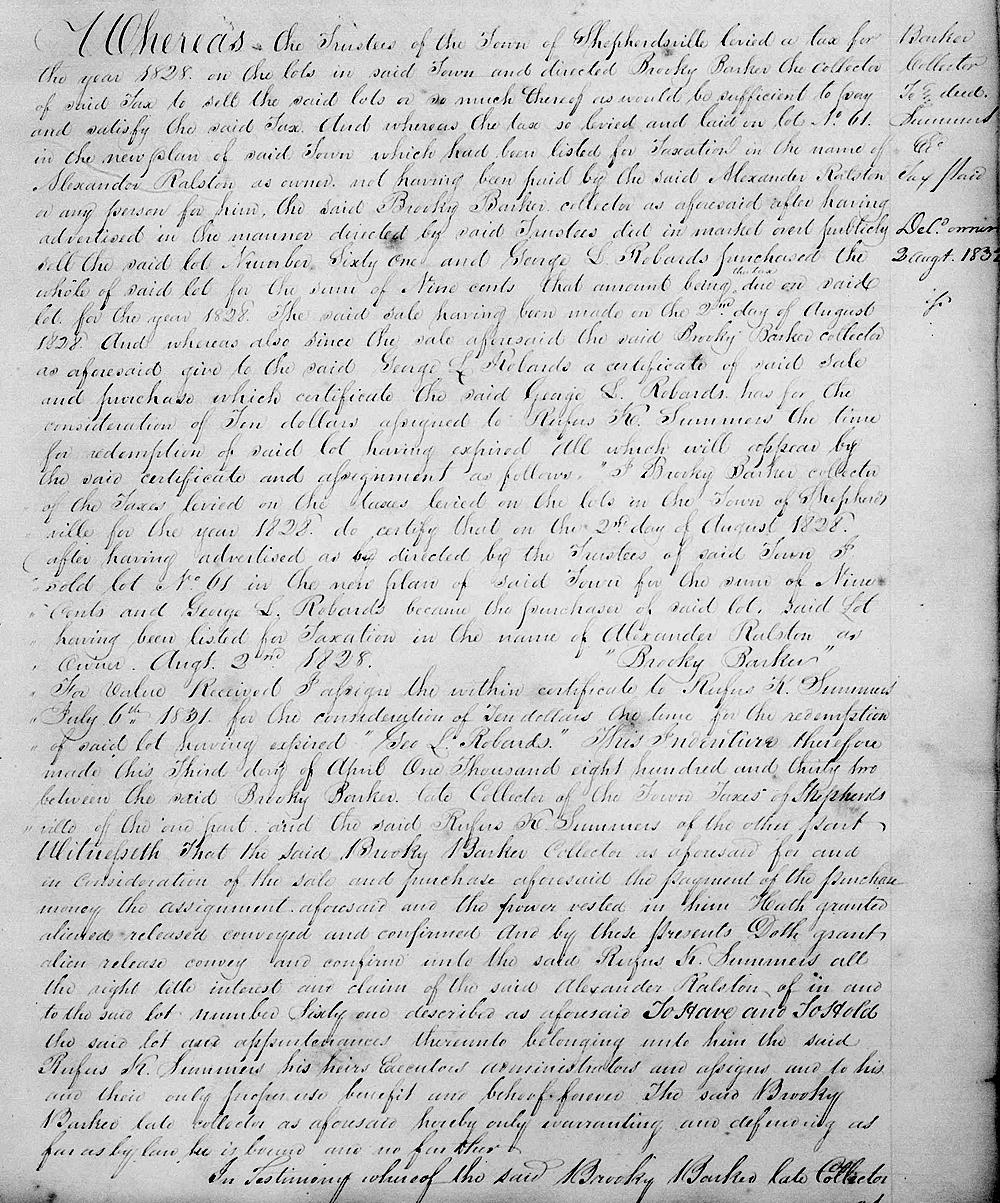 Whereas the Trustees of the Town of Shepherdsville levied a tax for
the year 1828. on the lots in said Town and directed Brooky Barker the collector
of said Tax to sell the said lots or so much thereof as would be sufficient to pay
and satisfy the said Tax. And whereas the tax so levied and laid on lot No. 61.
in the new plan of said Town which had been listed for Taxation in the name of
Alexander Ralston as owner. not having been paid by the said Alexander Ralston
or any person for him, the said Brooky Barker collector as aforesaid after having
advertised in the manner directed by said Trustees did in market overt publicly
sell the said lot Number Sixty one and George L. Robards purchased the
whole of said lot for the sum of Nine cents that amount being the tax due on said
lot. for the year 1828. The said sale having been made on the 2nd day of August
1828. And whereas also since the sale aforesaid the said Brooky Barker collector
as aforesaid give to the said George L Robards a certificate of said sale
and purchase which certificate the said George L. Robards has for the
consideration of Ten dollars assigned to Rufus K. Summers the time
for redemption of said lot having expired All which will appear by
the said certificate and assignment as follows. "I Brooky Barker collector
" of the Taxes levied on the taxes levied on the lots in the Town of Shepherds
" ville for the year 1828. do certify that on the 2nd day of August 1828.
" after having advertised as directed by the Trustees of said Town I
" sold lot No. 61 in the new plan of said Town for the sum of Nine
" Cents and George L. Robards became the purchaser of said lot. said Lot
" having been listed for Taxation in the name of Alexander Ralston as
" Owner. Augt. 2nd 1828. "Brooky Barker"
" For Value Received I assign the within certificate to Rufus K. Summers
" July 6th 1831. for the consideration of Ten dollars the time for the redemption
" of said lot having expired "Geo L. Robards." This Indenture therefore
made this Third day of April One Thousand eight hundred and thirty two
between the said Brooky Barker. late Collector of the Town Taxes of Shepherds
ville of the one part. and the said Rufus K Summers of the other part
Witnesseth That the said Brooky Barker Collector as aforesaid for and
in consideration of the sale and purchase aforesaid the payment of the purchase
money the assignment aforesaid and the power vested in him Hath granted
aliened released conveyed and confirmed And by these presents Doth grant
alien release convey and confirm unto the said Rufus K. Summers all
the right title interest and claim of the said Alexander Ralston of in and
to the said lot number Sixty one described as aforesaid To Have and To Hold
the said lot and appurtenances thereunto belonging unto him the said
Rufus K. Summers his heirs Executors administrators and assigns and to his
and their only proper use benefit and behoof forever The said Brooky
Barker late collector as aforesaid hereby only warranting and defending as
far as by law he is bound and no farther
In Testimony whereof the said Brooky Barker late Collector
Barker
Collector
To deed.
Summers
&c
Tax Paid
Deld. owner
2 augt. 183